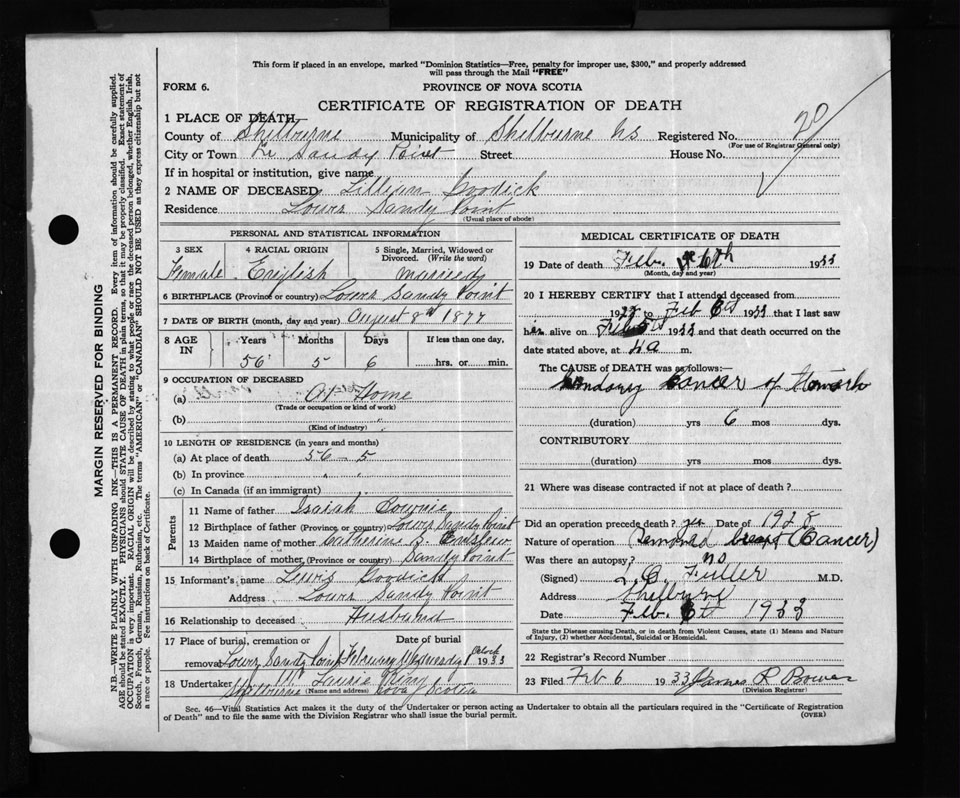 This form if placed in an envelope, marked "Dominion Statistics—Free, penalty for improper use, $300," and properly addressed
will pass through the Mail "FREE"
FORM 6.
PROVINCE OF NOVA SCOTIA
CERTIFICATE OF REGISTRATION OF DEATH
1 PLACE OF DEATH
County of Shelburne Municipality of Shelburne NS Registered No.
(For use of Registrar General only)
City or Town Lr Sandy Point Street House No.
If in hospital or institution, give name
2 NAME OF DECEASED Lillian Goodick
Residence Lower Sandy Point
(Usual place of abode)
MARGIN RESERVED FOR BINDING
N.B.—WRITE PLAINLY WITH UNFADING INK—THIS IS A PERMANENT RECORD. Every item of information should be carefully supplied.
AGE should be stated EXACTLY. PHYSICIANS should STATE CAUSE OF DEATH in plain terms, so that it may be properly classified. Exact statement of
OCCUPATION is very important. RACIAL ORIGIN will be described by stating to what people or race the deceased person belonged, whether English, Irish,
Scotch, French, German, Russian, Ruthenian, etc. The terms "AMERICAN" or "CANADIAN" SHOULD NOT BE USED as they express citizenship but not
a race or people. See instructions on back of Certificate.
PERSONAL AND STATISTICAL INFORMATION
3 SEX 4 RACIAL ORIGIN 5 Single, Married, Widowed or
Divorced. (Write the word)
Female English married
6 BIRTHPLACE (Province or country) Lower Sandy Point
7 DATE OF BIRTH (month, day and year) August 8th 1877
8 AGE IN Years Months Days If less than one day,
56 5 6 hrs. or min.
9 OCCUPATION OF DECEASED
(a) At Home
(Trade or occupation or kind of work)
(b)
(Kind of industry)
10 LENGTH OF RESIDENCE (in years and months)
(a) At place of death 56-5
(b) In province
(c) In Canada (if an immigrant)
Parents
11 Name of father Isaiah
12 Birthplace of father (Province or country) Lower Sandy Point
13 Maiden name of mother Catherine S.
14 Birthplace of mother (Province or country) Sandy Point
15 Informant's name Lewis Goodick
Address Lower Sandy Point
16 Relationship to deceased Husband
17 Place of burial, cremation or Date of burial
removal Lower Sandy Point February Wednesday 1933
18 Undertaker
Shelburne (Name and address) Nova Scotia
MEDICAL CERTIFICATE OF DEATH
19 Date of death Feb. 6th 1933
(Month, day and year)
20 I HEREBY CERTIFY that I attended deceased from
19 to Feb 1933 that I last saw
her alive on Feb 1933 and that death occurred on
date stated above, at 4 a m.
The CAUSE OF DEATH was as follows:—
Cancer of Stomach
(duration) yrs 6 mos dys.
CONTRIBUTORY
(duration) yrs mos dys.
21 Where was disease contracted if not at place of death?
Did an operation precede death? yes Date of 1928
Nature of operation Removed breast (Cancer)
Was there an autopsy? no
(Signed) Fuller M.D.
Address Shelburne
Date Feb. 6th 1933
State the Disease causing Death, or in death from Violent Causes, state (1) Means and Nature
of Injury, (2) whether Accidental, Suicidal or Homicidal.
22 Registrar's Record Number
23 Filed Feb 6 1933 James R Bower
(Division Registrar)
Sec. 46—Vital Statistics Act makes it the duty of the Undertaker or person acting as Undertaker to obtain all the particulars required in the "Certificate of Registration
of Death" and to file the same with the Division Registrar who shall issue the burial permit.
(OVER)